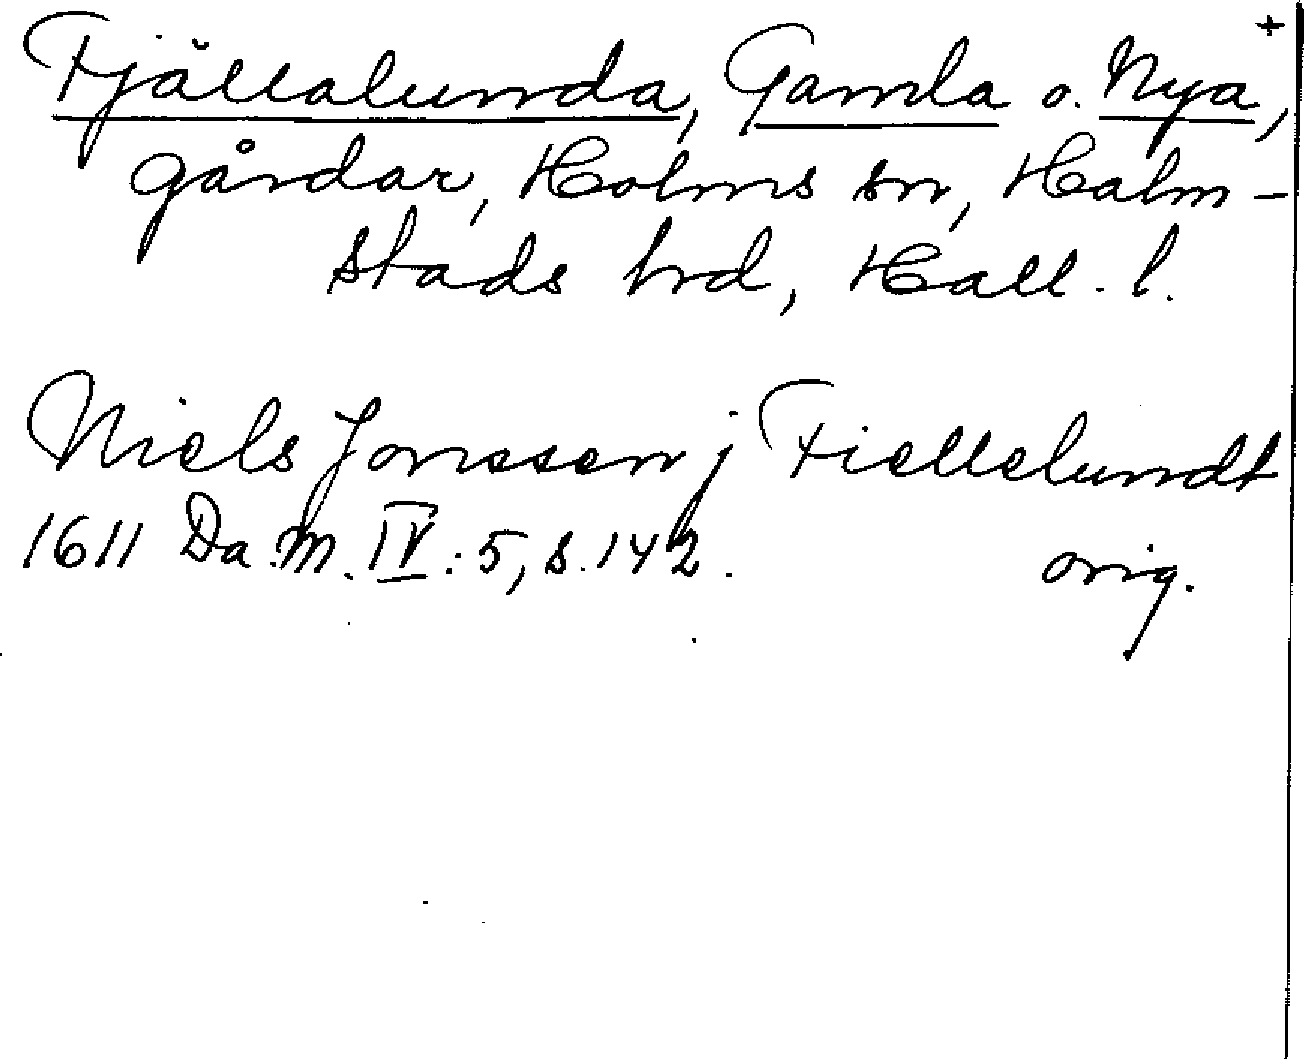 +
Fjällalunda, Gamla o. Nya,
gårdar, Holms sn, Halm-
stads hrd, Hall. l.
Niels Jonssen j Fiellelundt
1611 Da.M. IV:5, s. 142. orig.